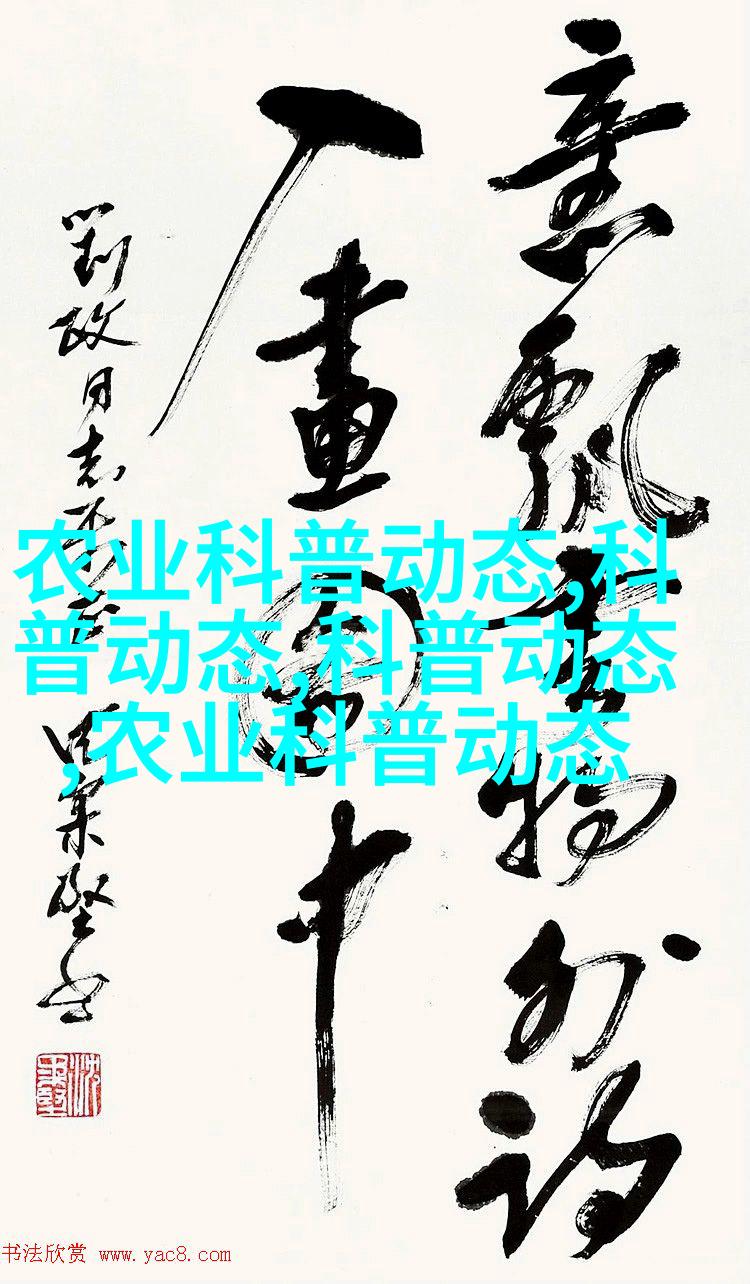 意飄雲物外詩
入畫圖中
劉政同志
农业科普动态,科
普动态,科普动态
,农业科普动态
书法欣赏 www.yac8.com